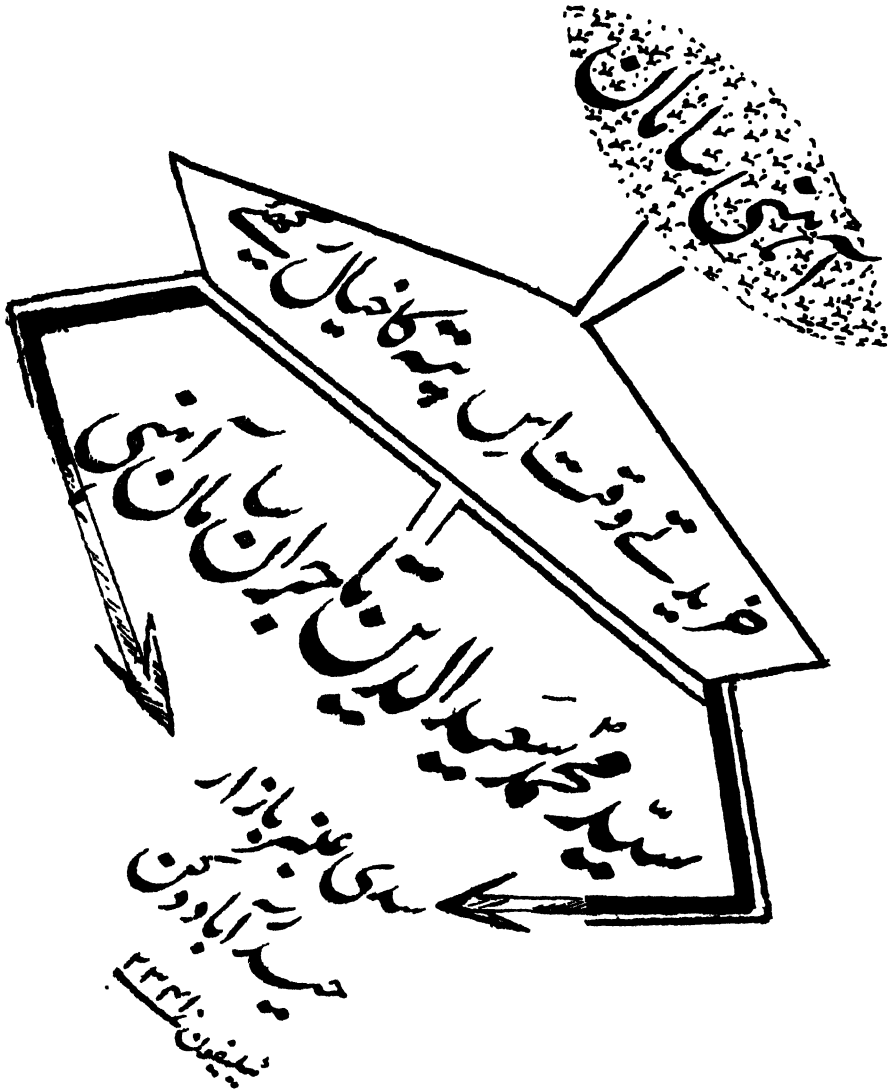 آہنی سامان
خریدتے وقت اس پتہ کا خیال رکھیے
سید محمد سعید الدین تاجران سامان آہنی
سدی عنبر بازار
حیدرآباد دکن
ٹیلیفون